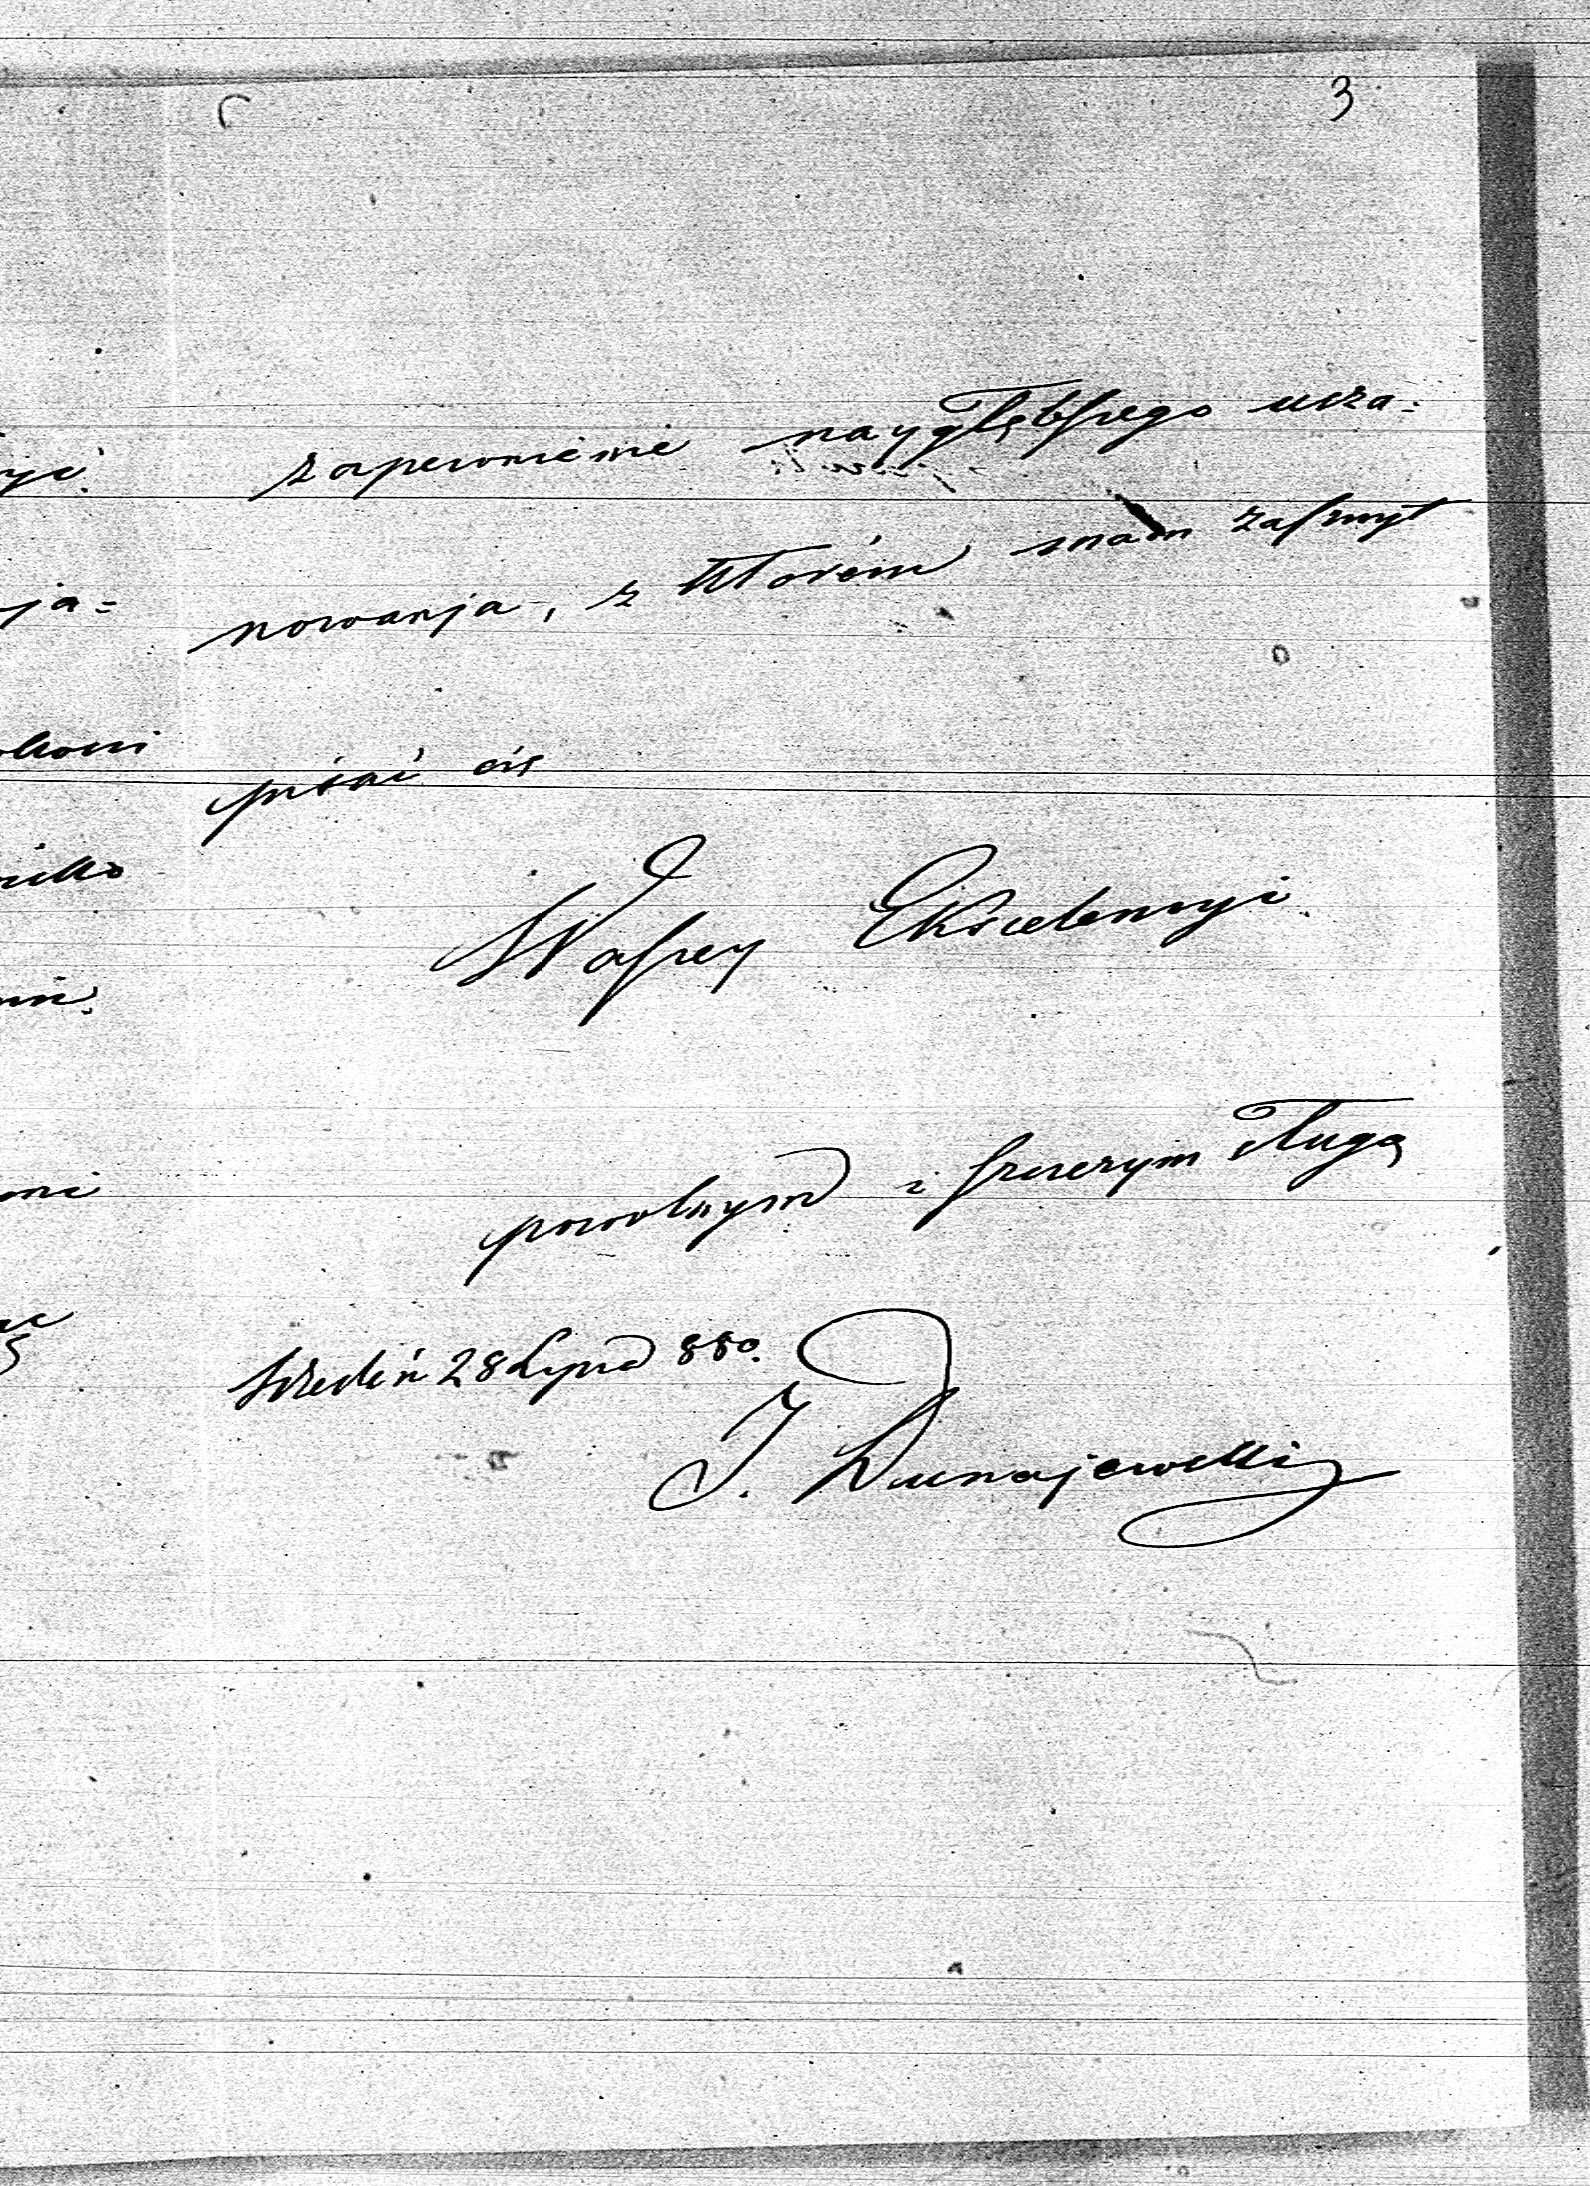 3
zapewnienie naygłębszego usza=
nowanja, z którém mam zaszczyt
pisać się
Waszey Ekscelencyi
powolnym i szczerym sługą
Wiedeń 28 Lipca 880.
J. Dunajewski